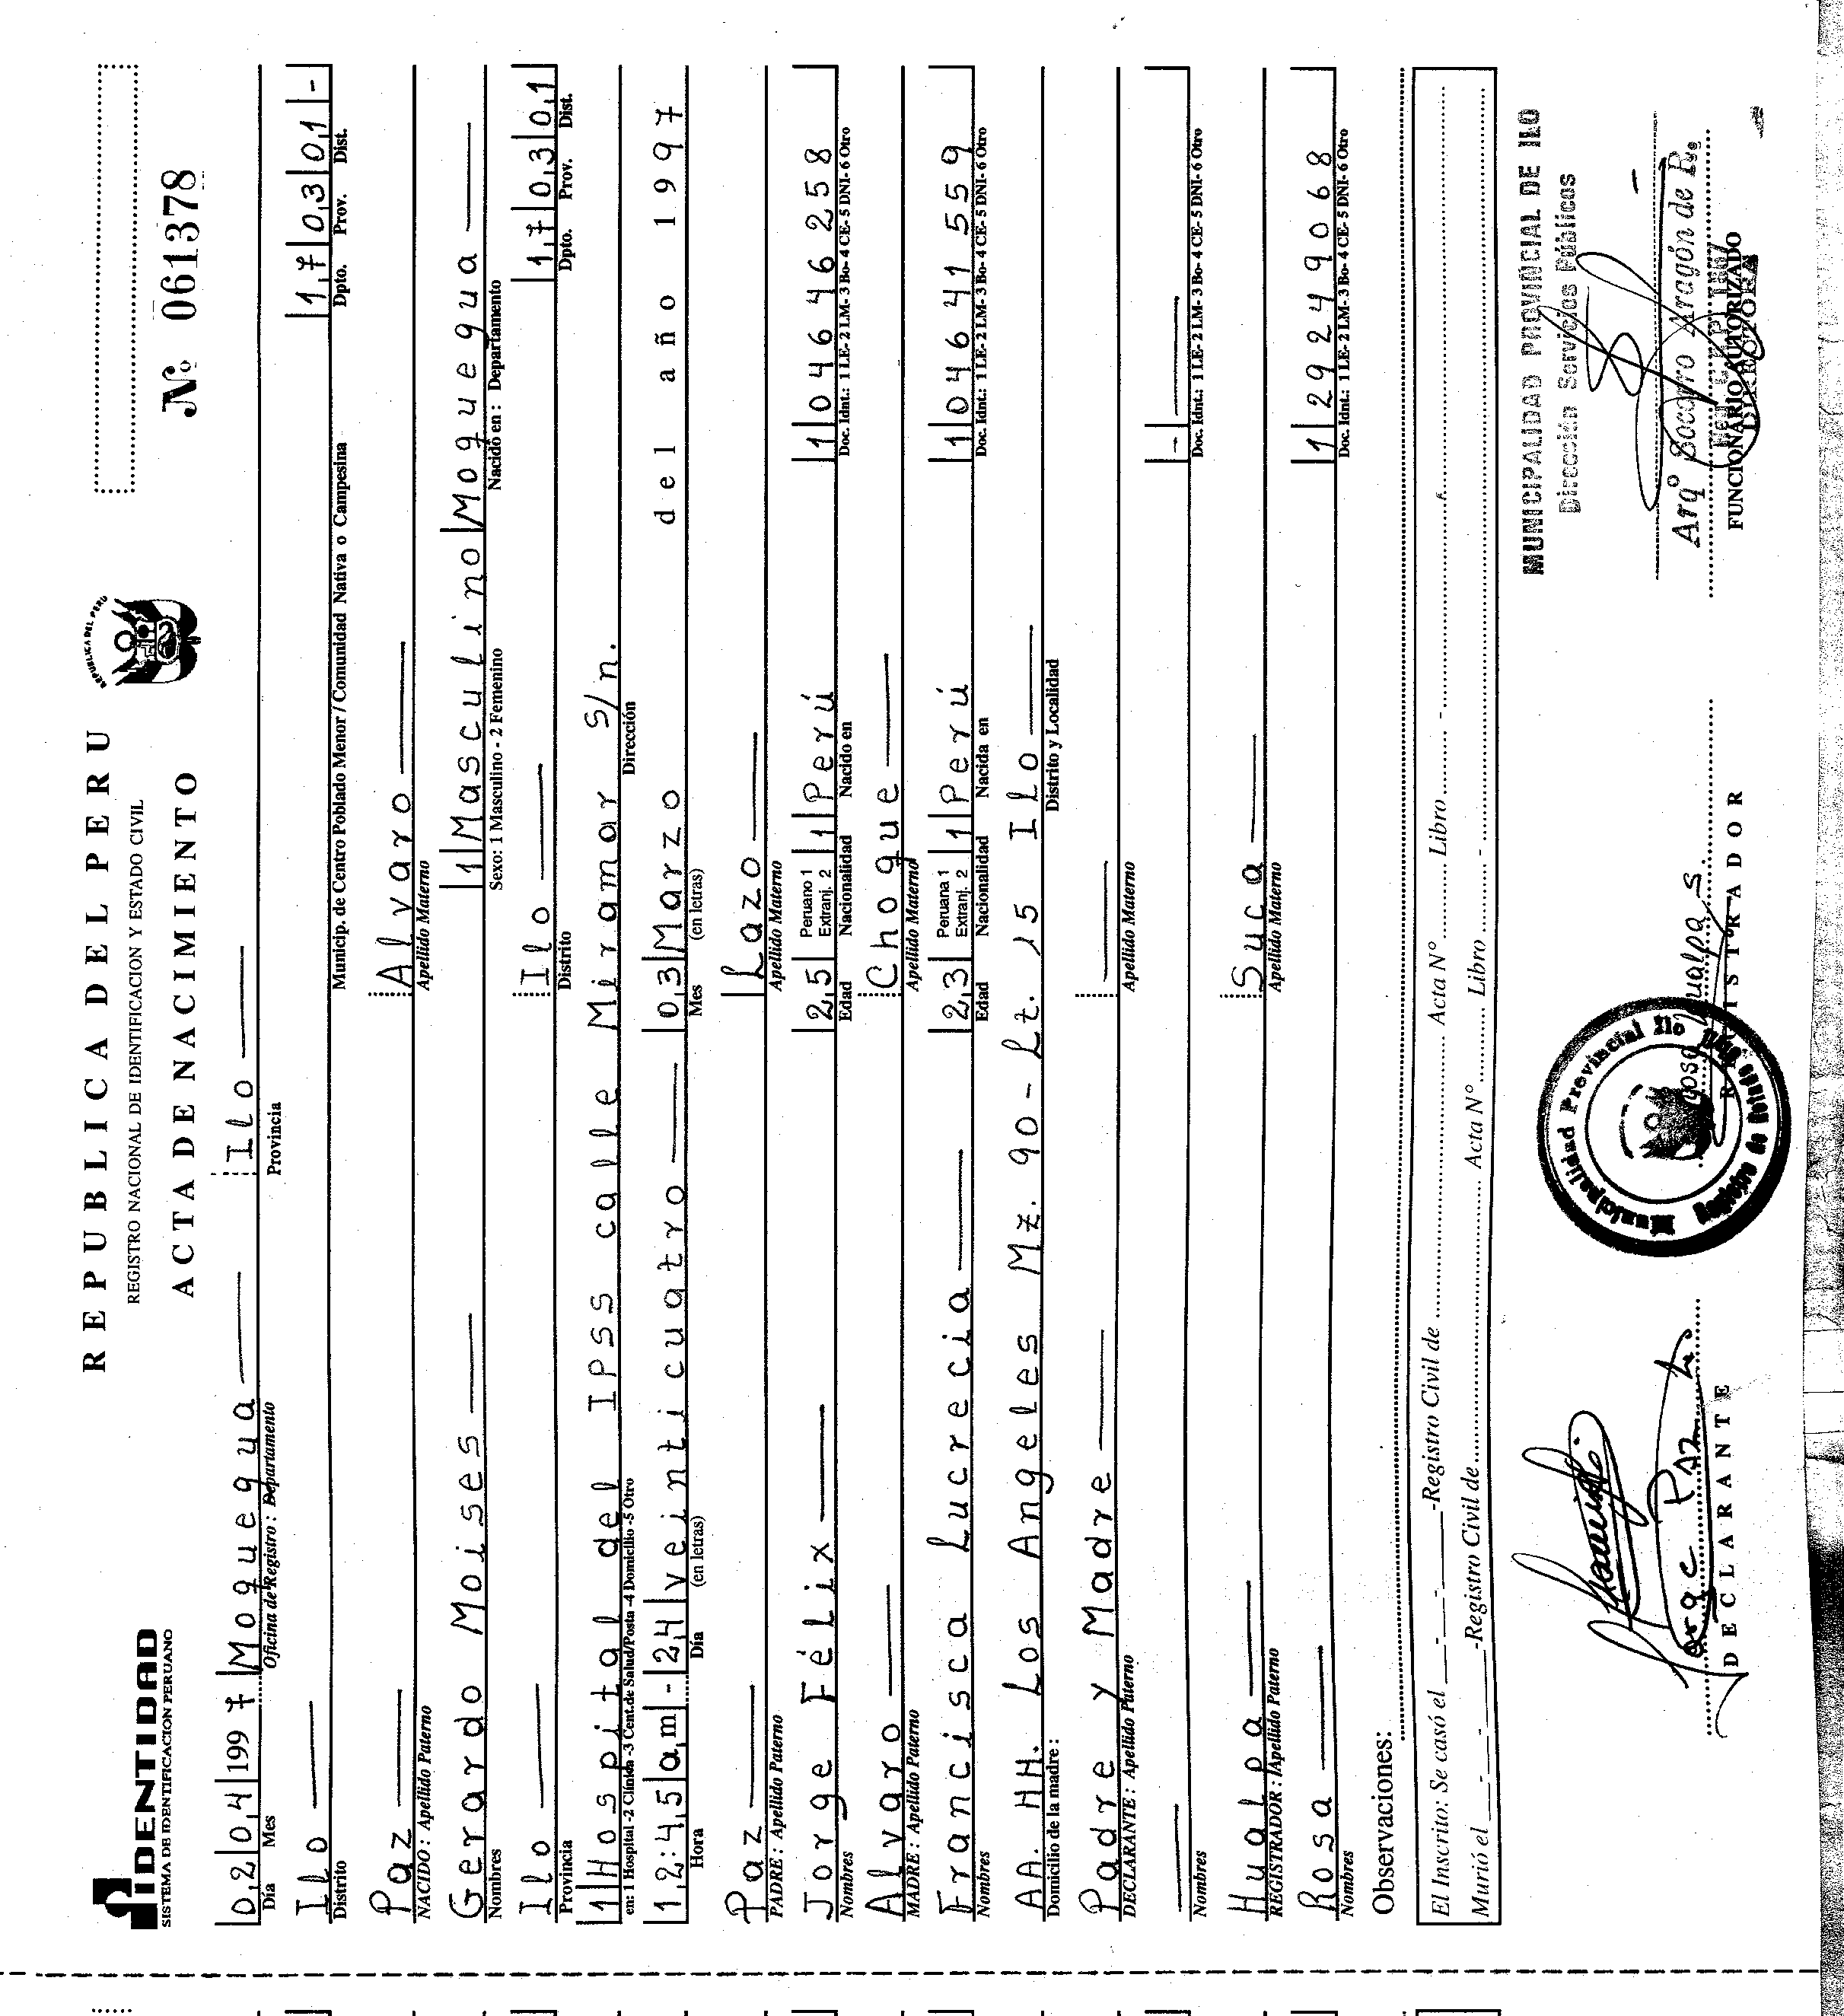 IDENTIDAD
SISTEMA DE IDENTIFICACION PERUANO
REPUBLICA DEL PERU
REPUBLICA DEL PERU
REGISTRO NACIONAL DE IDENTIFICACION Y ESTADO CIVIL
ACTA DE NACIMIENTO
Nº 061378
02 04 1997 Moquegua Ilo
Día Mes Oficina de Registro : Departamento Provincia
Ilo 17 03 01 -
Distrito Municip. de Centro Poblado Menor / Comunidad Nativa o Campesina Dpto. Prov. Dist.
Paz Alvaro
NACIDO : Apellido Paterno Apellido Materno
Gerardo Moises 1 Masculino Moquegua
Nombres Sexo: 1 Masculino - 2 Femenino Nacido en : Departamento
Ilo Ilo 17 03 01
Provincia Distrito Dpto. Prov. Dist.
1 Hospital del IPSS calle Miramar s/n.
en: 1 Hospital -2 Clínica -3 Cent.de Salud/Posta -4 Domicilio -5 Otro Dirección
12:45 am - 24 veinticuatro 03 Marzo del año 1997
Hora Día (en letras) Mes (en letras)
Paz Lazo
PADRE : Apellido Paterno Apellido Materno
Jorge Félix 25 Peruano 1 Extranj. 2 1 Perú 1 04646258
Nombres Edad Nacionalidad Nacido en Doc. Idnt.: 1 LE- 2 LM- 3 Bo- 4 CE- 5 DNI- 6 Otro
Alvaro Choque
MADRE : Apellido Paterno Apellido Materno
Francisca Lucrecia 23 Peruana 1 Extranj. 2 1 Perú 1 04641559
Nombres Edad Nacionalidad Nacida en Doc. Idnt.: 1 LE- 2 LM- 3 Bo- 4 CE- 5 DNI- 6 Otro
AA. HH. Los Angeles Mz. 90 - Lt. 15 Ilo
Domicilio de la madre : Distrito y Localidad
Padre y Madre
DECLARANTE : Apellido Paterno Apellido Materno
-
Nombres Doc. Idnt.: 1 LE- 2 LM- 3 Bo- 4 CE- 5 DNI- 6 Otro
Hualpa Suca
REGISTRADOR : Apellido Paterno Apellido Materno
Rosa 1 29249068
Nombres Doc. Idnt.: 1 LE- 2 LM- 3 Bo- 4 CE- 5 DNI- 6 Otro
Observaciones:
El Inscrito: Se casó el - - -Registro Civil de Acta N° Libro -
Murió el - - -Registro Civil de Acta N° Libro -
MUNICIPALIDAD PROVINCIAL DE ILO
Dirección Servicios Públicos
Municipalidad Provincial Ilo
Rosa Hualpa S.
Jorge Paz L
Arqº Socorro Aragón de R.
DIRECTORA
DECLARANTE REGISTRADOR FUNCIONARIO AUTORIZADO